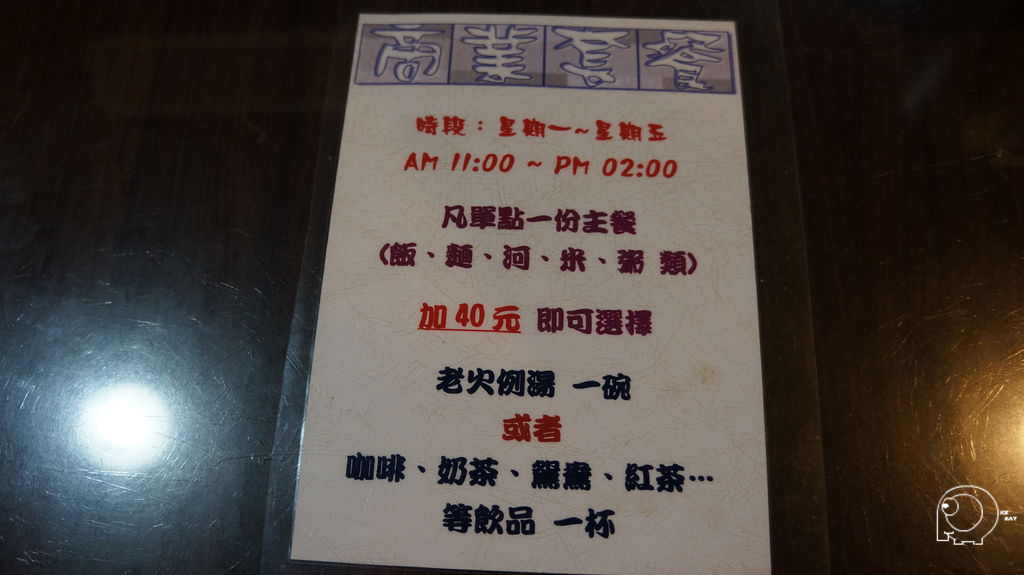 商業套餐
時段：星期一~星期五
AM 11:00 ~ PM 02:00
凡單點一份主餐
(飯、麵、河、米、粥 類)
加 40 元 即可選擇
老火例湯 一碗
或者
咖啡、奶茶、鴛鴦、紅茶…
等飲品 一杯
ICE
EAT